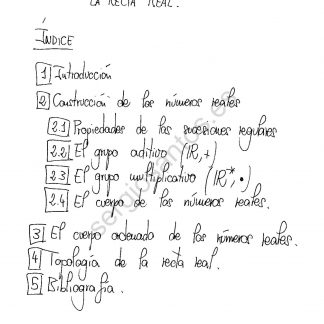 LA RECTA REAL.
ÍNDICE
1 Introducción
2 Construcción de los números reales
2.1 Propiedades de las sucesiones regulares
2.2 El grupo aditivo (ℝ,+)
2.3 El grupo multiplicativo (ℝ*,·)
2.4 El cuerpo de los números reales.
3 El cuerpo ordenado de los números reales.
4 Topología de la recta real.
5 Bibliografía.